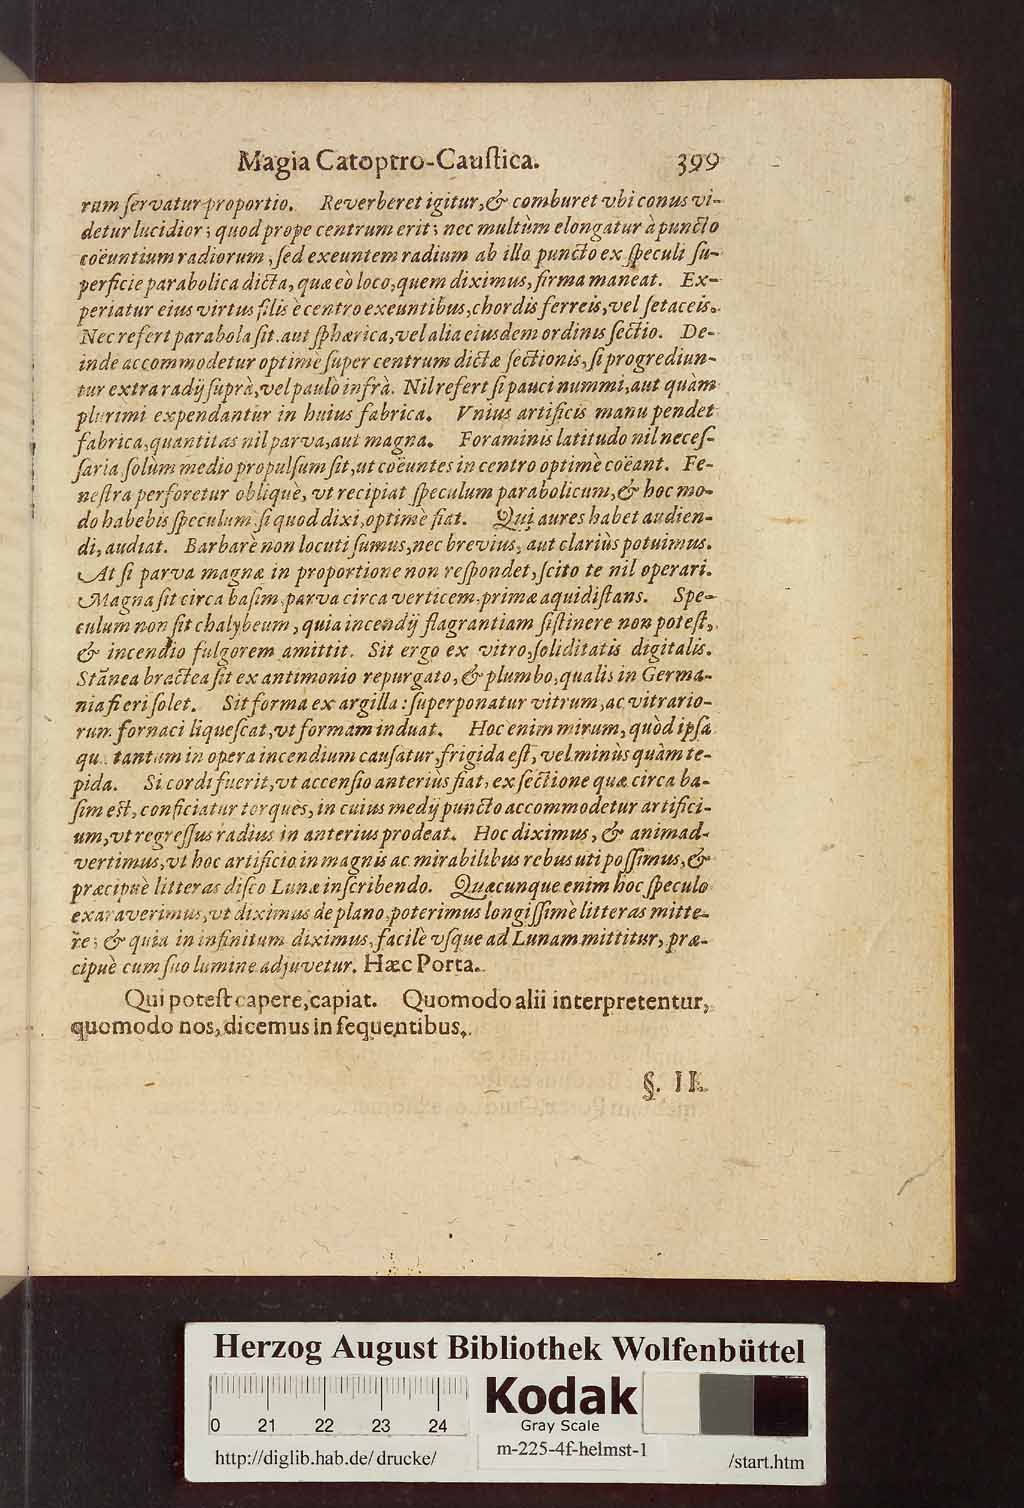 Magia Catoptro-Cauſtica. 399
rum ſervatur proportio. Reverberet igitur, & comburet vbi conus vi-
detur lucidior; quod prope centrum erit; nec multùm elongatur à puncto
coëuntium radiorum, ſed exeuntem radium ab illo puncto ex ſpeculi ſu-
perficie parabolica dicta, quæ eò loco, quem diximus, firma maneat. Ex-
periatur eius virtus filis è centro exeuntibus, chordis ferreis, vel ſetaceis.
Nec refert parabola ſit, aut ſphærica, vel alia eiusdem ordinis ſectio. De-
inde accommodetur optimè ſuper centrum dictæ ſectionis, ſi progrediun-
tur extra radij ſuprà, vel paulò infrà. Nil refert ſi pauci nummi, aut quàm
plurimi expendantur in huius fabrica. Vnius artificis manu pendet
fabrica, quantitas nil parva, aut magna. Foraminis latitudo nil neceſ-
ſaria, ſolùm medio propulſum ſit, ut coëuntes in centro optimè coëant. Fe-
neſtra perforetur obliquè, vt recipiat ſpeculum parabolicum, & hoc mo-
do habebis ſpeculum, ſi quod dixi, optimè fiat. Qui aures habet audien-
di, audiat. Barbarè non locuti ſumus, nec brevius, aut clariùs potuimus.
At ſi parva magnæ in proportione non reſpondet, ſcito te nil operari.
Magna ſit circa baſim, parva circa verticem, primæ æquidiſtans. Spe-
culum non ſit chalybeum, quia incendij flagrantiam ſiſtinere non poteſt,
& incendio fulgorem amittit. Sit ergo ex vitro, ſoliditatis digitalis.
Stãnea bractea ſit ex antimonio repurgato, & plumbo, qualis in Germa-
nia fieri ſolet. Sit forma ex argilla: ſuperponatur vitrum, ac vitrario-
rum fornaci liqueſcat, vt formam induat. Hoc enim mirum, quòd ipſa
tantum in opera incendium cauſatur, frigida eſt, vel minùs quàm te-
pida. Si cordi fuerit, vt accenſio anteriùs fiat, ex ſectione quæ circa ba-
ſim eſt, conficiatur torques, in cuius medij puncto accommodetur artifici-
um, vt regreſſus radius in anterius prodeat. Hoc diximus, & animad-
vertimus, vt hoc artificio in magnis ac mirabilibus rebus uti poſſimus, &
præcipuè litteras diſco Lunæ inſcribendo. Quæcunque enim hoc ſpeculo
exaraverimus, vt diximus de plano, poterimus longiſſimè litteras mitte-
re; & quia in infinitum diximus, facilè vſque ad Lunam mittitur, præ-
cipuè cum ſuo lumine adjuvetur. Hæc Porta.
Qui poteſt capere, capiat. Quomodo alii interpretentur,
quomodo nos, dicemus in ſequentibus.
§. II.
Herzog August Bibliothek Wolfenbüttel
Kodak
Gray Scale
0 21 22 23 24
m-225-4f-helmst-1
http://diglib.hab.de/drucke/ /start.htm